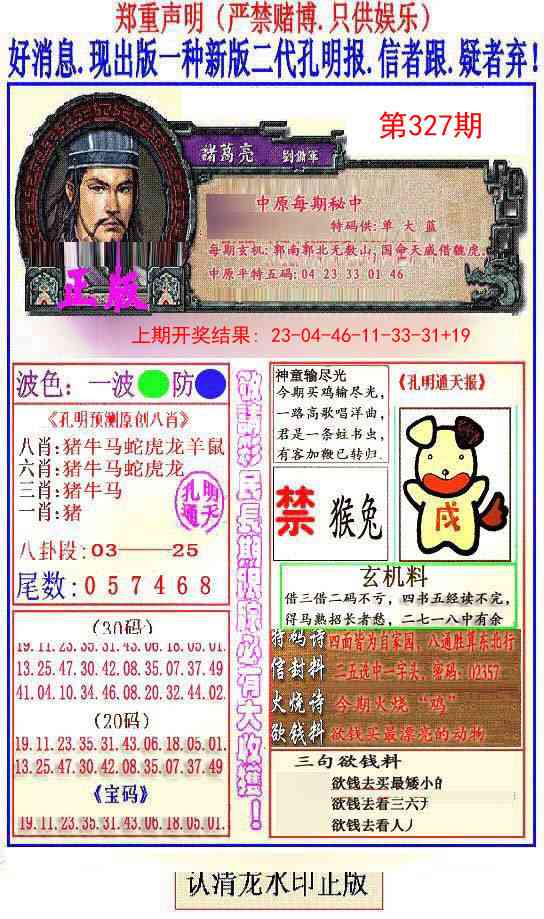 郑重声明（严禁赌博.只供娱乐）
好消息.现出版一种新版二代孔明报.信者跟.疑者弃!
第327期
諸葛亮 劉備軍
中原每期秘中
特码供:单大蓝
每期玄机:郭南郭北无数山,国命天威借魏虎.
中原平特五码:04 23 33 01 46
正版
上期开奖结果: 23-04-46-11-33-31+19
波色:一波 防
《孔明预测原创八肖》
八肖:猪牛马蛇虎龙羊鼠
六肖:猪牛马蛇虎龙
三肖:猪牛马
一肖:猪
孔明
通天
八卦段:03——25
尾数:057468
(30码)
19.11.23.35.31.43.06.18.05.01.
13.25.47.30.42.08.35.07.37.49
41.04.10.34.46.08.20.32.44.02
(20码)
19.11.23.35.31.43.06.18.05.01.
13.25.47.30.42.08.35.07.37.49
《宝码》
19.11.23.35.31.43.06.18.05.01.
敬請彩民長期跟踪必有大收穫！
神童输尽光
今期买鸡输尽光,
一路高歌唱洋曲,
君是一条蛀书虫,
有客加鞭已转归.
《孔明通天报》
禁 猴兔
戌
玄机料
借三借二码不亏,四书五经读不完,
得马熟招长者愁,二七一八中有余
特码诗 四面皆为自家国、八通胜算东北行
信封料 三五选中一字头、密码:02357
火烧诗 今期火烧“鸡”
欲钱料 欲钱买最漂亮的动物
三句欲钱料
欲钱去买最矮小的
欲钱去看三六
欲钱去看人
认清龙水印正版